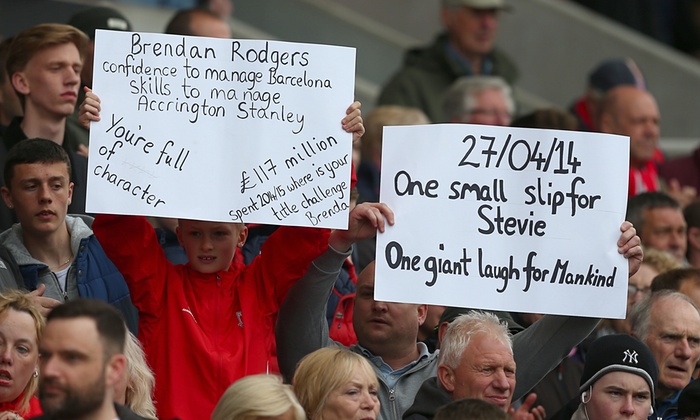 Brendan Rodgers
confidence to manage Barcelona
skills to manage
Accrington Stanley
You're full
of
character
£117 million
spent 2014/15 where is your
title challenge
Brenda
27/04/14
One small slip for
Stevie
One giant laugh for Mankind
NY